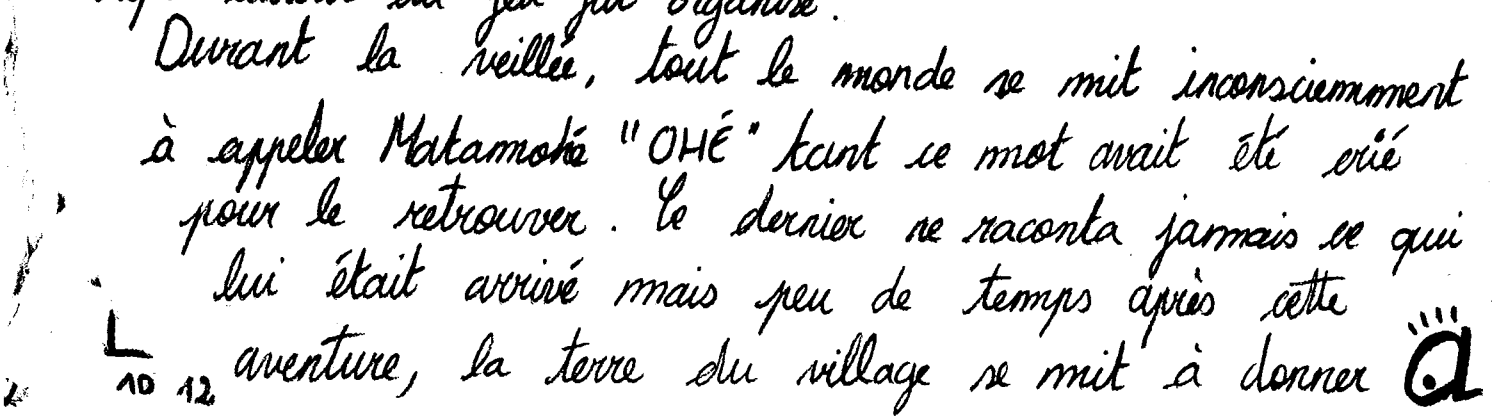 jeu organisé.
Durant la veillée, tout le monde se mit inconsciemment
à appeler Matamohé "OHÉ" tant ce mot avait été crié
pour le retrouver. Ce dernier ne raconta jamais ce qui
lui était arrivé mais peu de temps après cette
aventure, la terre du village se mit à donner
10 12